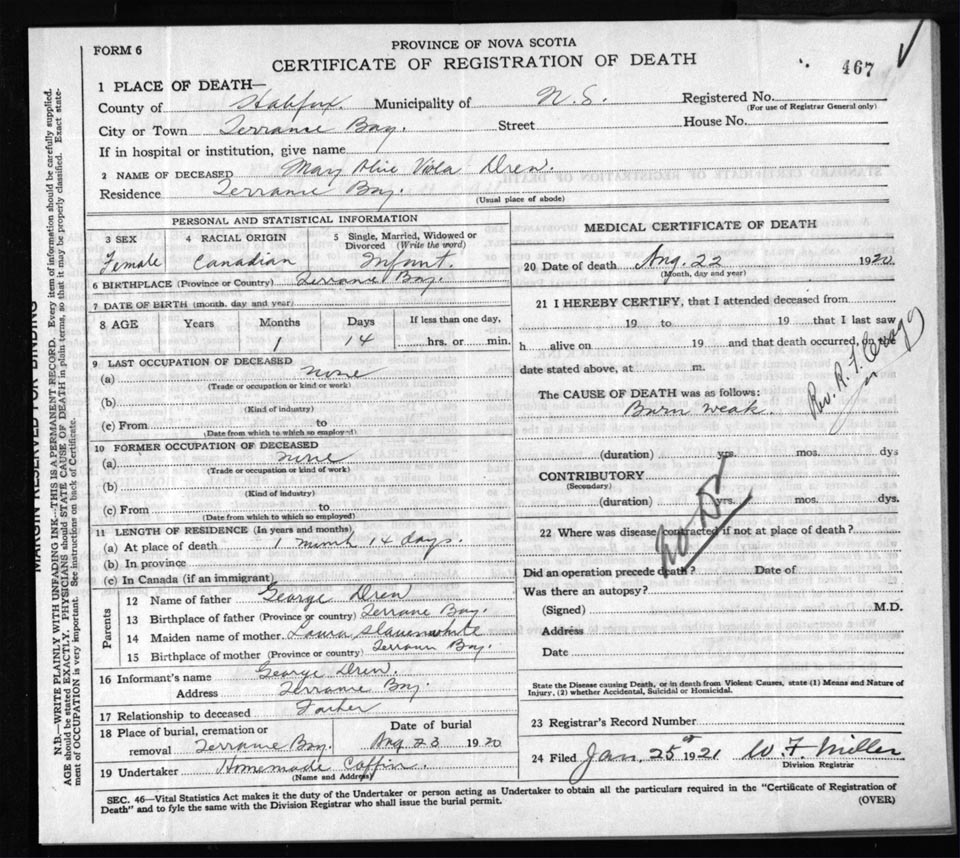 FORM 6
PROVINCE OF NOVA SCOTIA
CERTIFICATE OF REGISTRATION OF DEATH
467
1 PLACE OF DEATH—
County of Halifax. Municipality of N. S. Registered No.
(For use of Registrar General only)
City or Town Terrance Bay. Street House No.
If in hospital or institution, give name
2 NAME OF DECEASED Mary Olive Viola Drew.
Residence Terrance Bay.
(Usual place of abode)
PERSONAL AND STATISTICAL INFORMATION
3 SEX 4 RACIAL ORIGIN 5 Single, Married, Widowed or Divorced (Write the word)
Female Canadian Infant.
6 BIRTHPLACE (Province or Country) Terrance Bay.
7 DATE OF BIRTH (month, day and year)
8 AGE Years Months Days If less than one day,
1 14 hrs. or min.
9 LAST OCCUPATION OF DECEASED
(a) none
(Trade or occupation or kind or work)
(b)
(Kind of industry)
(c) From to
(Date from which to which so employed)
10 FORMER OCCUPATION OF DECEASED
(a) none
(Trade or occupation or kind of work)
(b)
(Kind of industry)
(c) From to
(Date from which to which so employed)
11 LENGTH OF RESIDENCE (In years and months)
(a) At place of death 1 month 14 days.
(b) In province
(c) In Canada (if an immigrant)
Parents
12 Name of father George Drew
13 Birthplace of father (Province or country) Terrance Bay.
14 Maiden name of mother Laura Slauenwhite
15 Birthplace of mother (Province or country) Terrance Bay.
16 Informant's name George Drew.
Address Terrance Bay.
17 Relationship to deceased Father
18 Place of burial, cremation or removal Terrance Bay. Date of burial Aug 23 1920
19 Undertaker Homemade Coffin.
(Name and Address)
MEDICAL CERTIFICATE OF DEATH
20 Date of death Aug. 22 1920
(Month, day and year)
21 I HEREBY CERTIFY, that I attended deceased from
19 to 19 that I last saw
h alive on 19 and that death occurred, on the
date stated above, at m.
The CAUSE OF DEATH was as follows:
Born weak.
Rev. R. F.
(duration) yrs. mos. dys
CONTRIBUTORY
(Secondary)
(duration) yrs. mos. dys.
No Dr
22 Where was disease contracted if not at place of death?
Did an operation precede death? Date of
Was there an autopsy?
(Signed) M.D.
Address
Date
State the Disease causing Death, or in death from Violent Causes, state (1) Means and Nature of
Injury, (2) whether Accidental, Suicidal or Homicidal.
23 Registrar's Record Number
24 Filed Jan. 25th 1921 W F Miller
Division Registrar
SEC. 46—Vital Statistics Act makes it the duty of the Undertaker or person acting as Undertaker to obtain all the particulars required in the "Certificate of Registration of
Death" and to fyle the same with the Division Registrar who shall issue the burial permit.
(OVER)
MARGIN RESERVED FOR BINDING
N.B.—WRITE PLAINLY WITH UNFADING INK—THIS IS A PERMANENT RECORD. Every item of information should be carefully supplied.
AGE should be stated EXACTLY. PHYSICIANS should STATE CAUSE OF DEATH in plain terms, so that it may be properly classified. Exact state-
ment of OCCUPATION is very important. See instructions on back of Certificate.